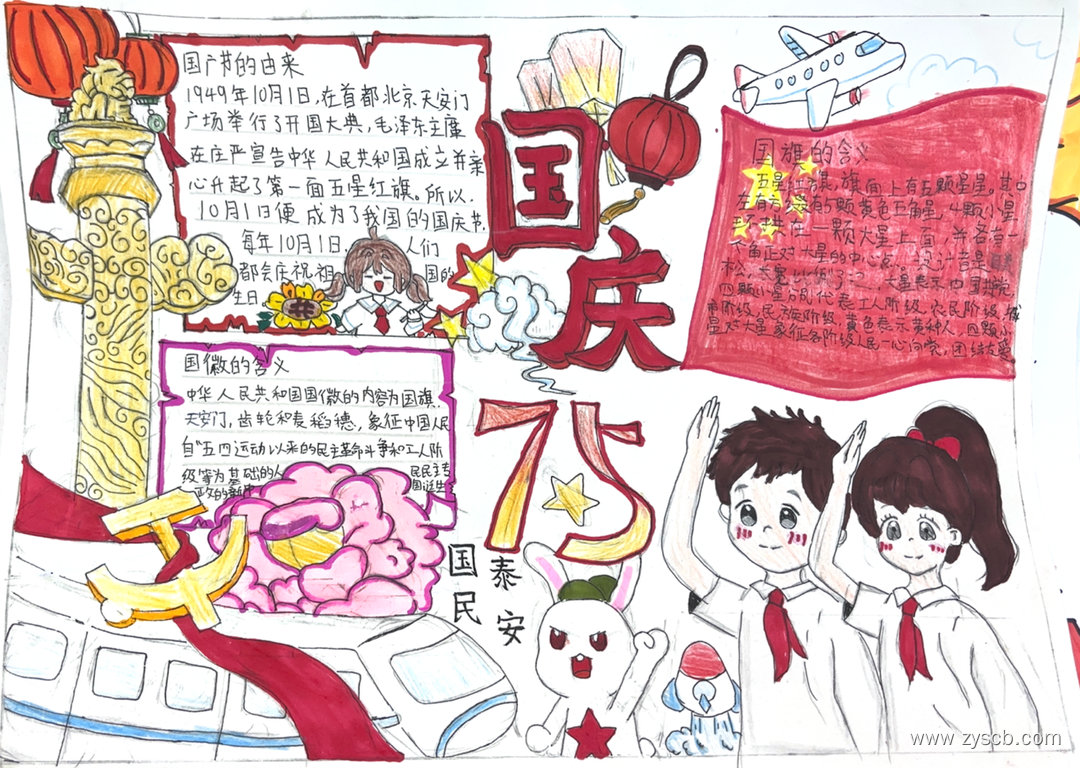 国庆节的由来
1949年10月1日,在首都北京天安门
广场举行了开国大典,毛泽东主席
在庄严宣告中华人民共和国成立并亲
心升起了第一面五星红旗。所以,
10月1日便成为了我国的国庆节,
每年10月1日,人们
都会庆祝祖国的
生日。
国庆
75
国旗的含义
五星红旗,旗面上有五颗星星。其中
左有方缀有5颗黄色五角星,4颗小星
环拱在一颗大星上面,并各有一
个角正对大星的中心点,
大星表示中国共党
四颗小星分别代表工人阶级,农民阶级,城
阶级,民族阶级,黄色表示黄种人,四颗小
星对大星象征各阶级人民一心向党,团结友爱
国徽的含义
中华人民共和国国徽的内容为国旗,
天安门,齿轮和麦稻穗,象征中国人民
自"五四运动以来的民主革命斗争和工人阶
级等为基础的人民民主专
政的新中国诞生
国泰
民安
www.zyscb.com